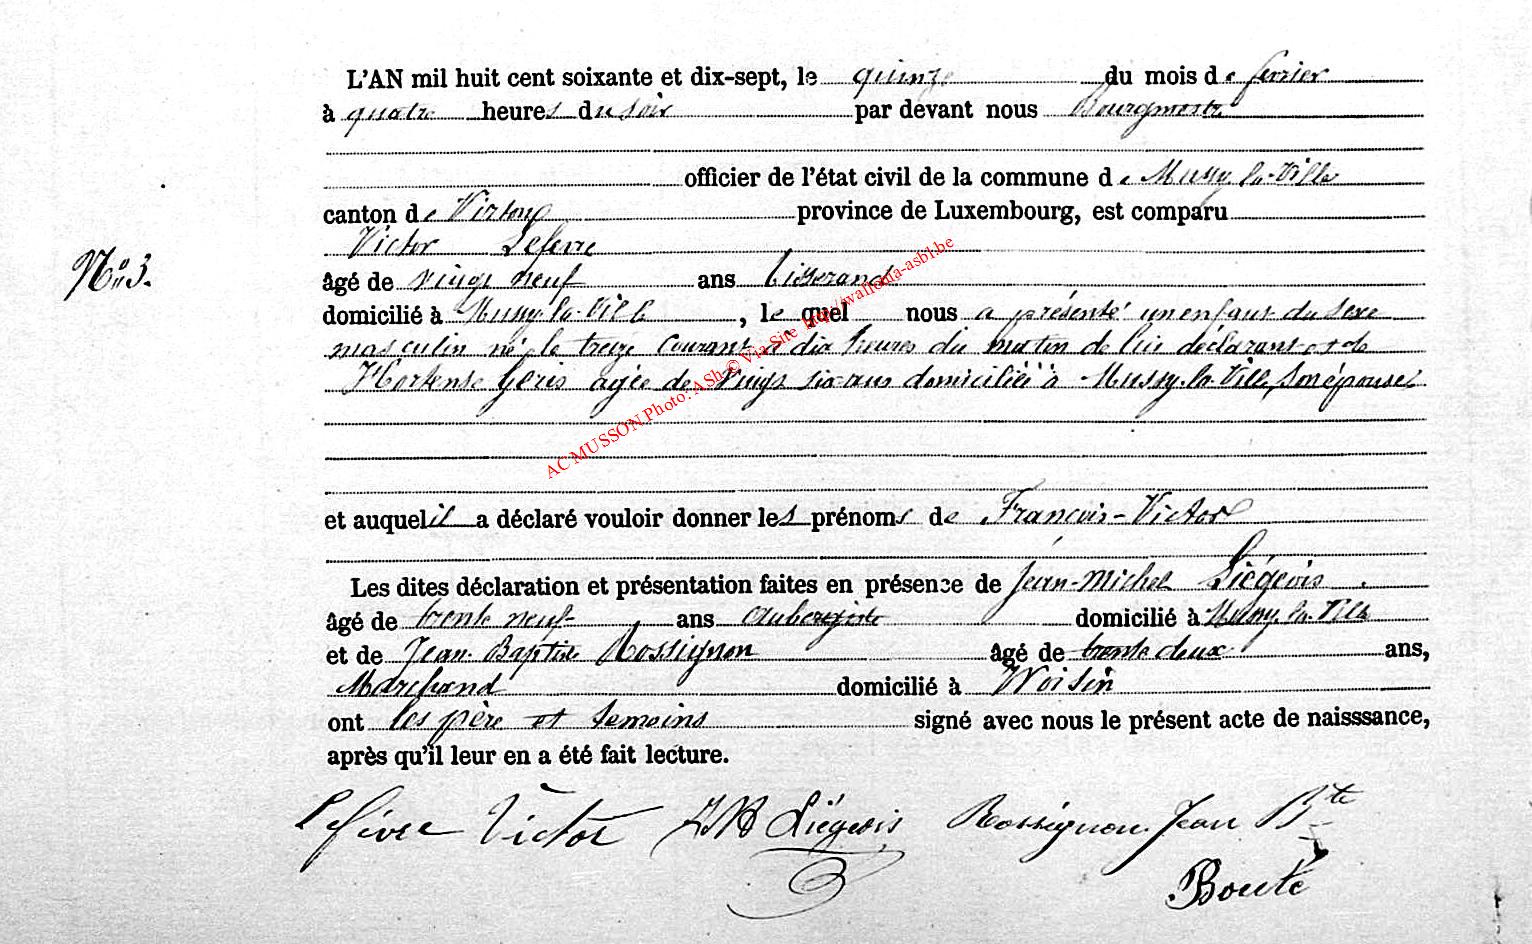 L'AN mil huit cent soixante et dix-sept, le quinze du mois de fevrier
à quatre heures du soir par devant nous Bourgmestre
officier de l'état civil de la commune de Mussy-la-Ville
canton de Virton province de Luxembourg, est comparu
Victor Lefevre
N° 3.
âgé de vingt neuf ans tisserand
domicilié à Mussy-la-Ville, lequel nous a présenté un enfant du sexe
masculin né le treize courant à dix heures du matin de lui déclarant et de
Hortense Geris agée de vingt six ans domiciliée à Mussy-la-Ville, son épouse
AC MUSSON Photo: ASh © Via Site http://wallonia-asbl.be
et auquel il a déclaré vouloir donner les prénoms de François-Victor
Les dites déclaration et présentation faites en présence de Jean-Michel Liégeois
âgé de trente neuf ans aubergiste domicilié à Mussy-la-Ville
et de Jean-Baptiste Rossignon âgé de trente deux ans,
Marchand domicilié à Woisin
ont les père et temoins signé avec nous le présent acte de naisssance,
après qu'il leur en a été fait lecture.
Lefèvre Victor JM Liégeois Rossignon Jean Bte
Bouté